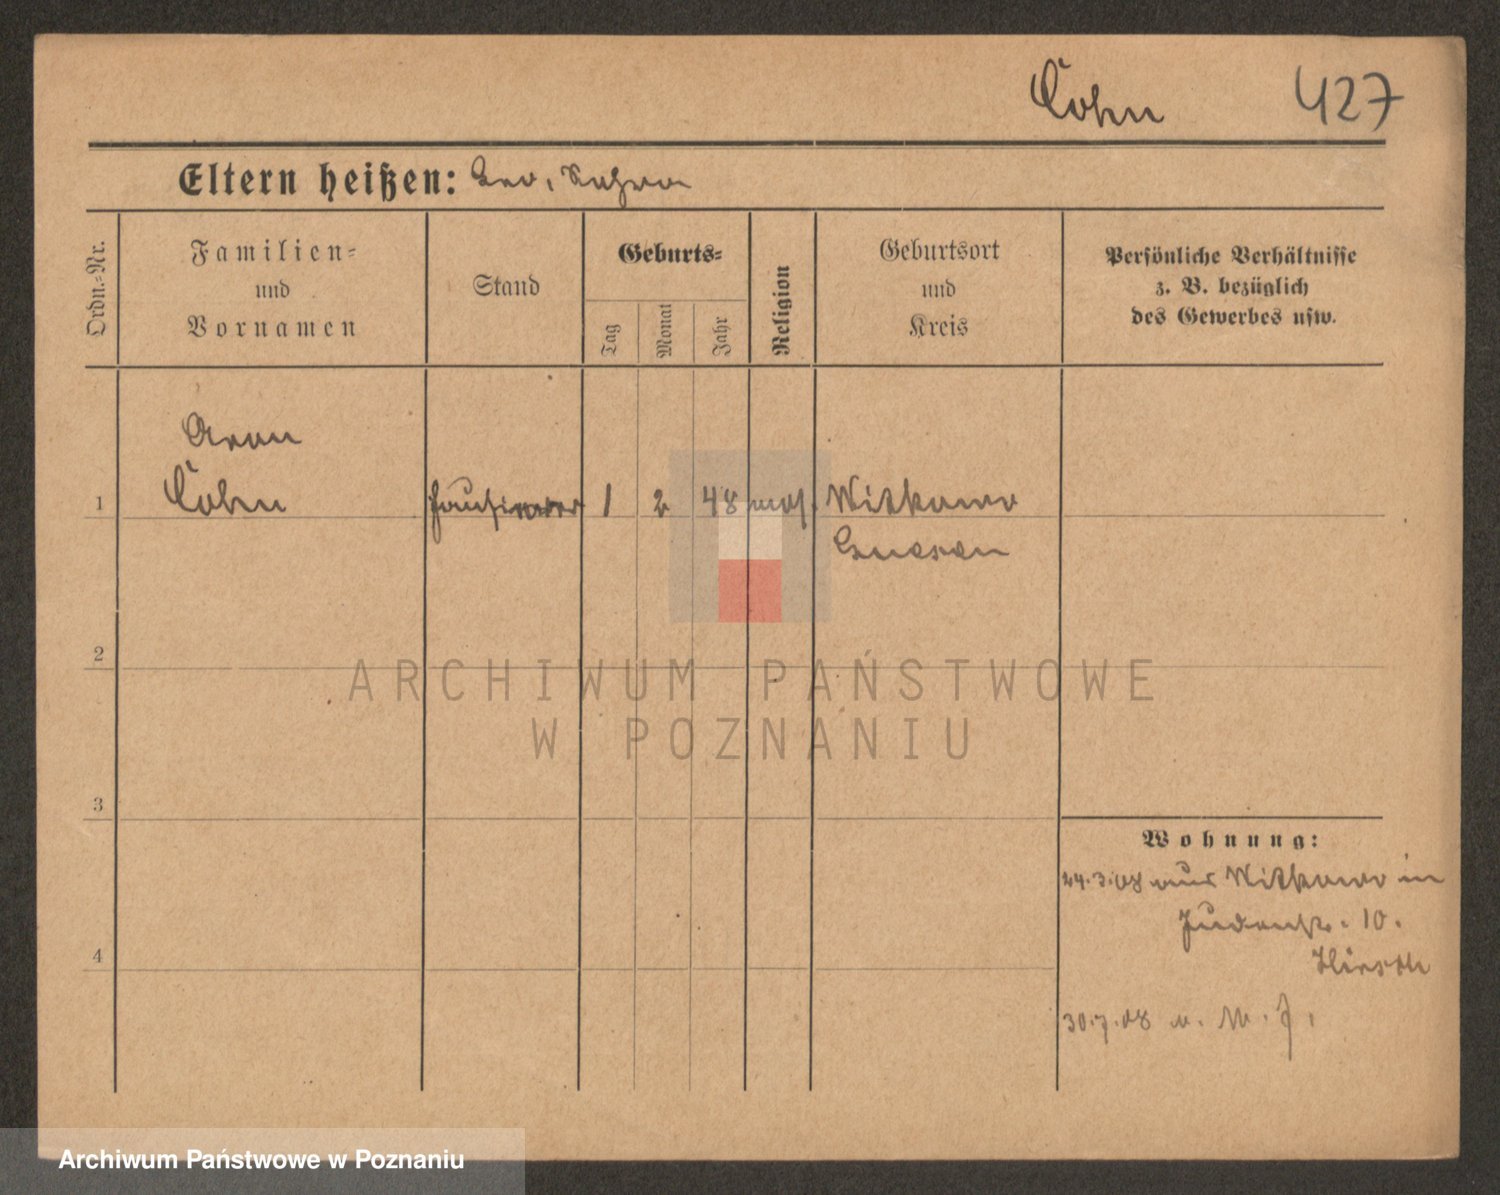 Cohn 427
Eltern heißen: Leo,
Ordn.-Nr.
Familien-
und
Vornamen
Stand
Geburts-
Tag
Monat
Jahr
Religion
Geburtsort
und
Kreis
Persönliche Verhältnisse
z. B. bezüglich
des Gewerbes usw.
Aron
1 Cohn Hausierer 1 2 48 mos. Witkowo
Gnesen
2
3
4
Wohnung:
24.3.08 aus Witkowo in
Judenstr. 10.
Hirsch
30.7.08 n.
ARCHIWUM PAŃSTWOWE
W POZNANIU
Archiwum Państwowe w Poznaniu